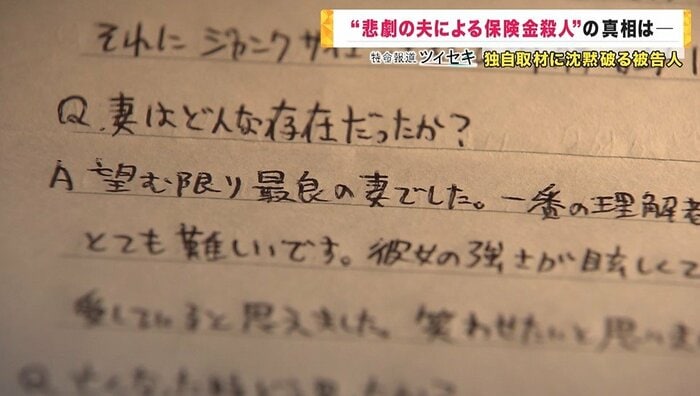 “悲劇の夫による保険金殺人”の真相は―
特命報道 ツイセキ 独自取材に沈黙破る被告人
それに ジャンクサイ
Q.妻はどんな存在だったか?
A 望む限り最良の妻でした。一番の理解者
とても難しいです。彼女の強さが眩しくて
愛していると思えました。笑わせたいと思い
Q 亡くなった時どう たか?